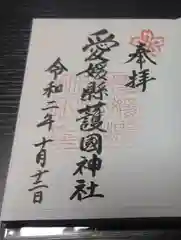 奉拝
愛媛縣護國神社
令和二年十月十二日